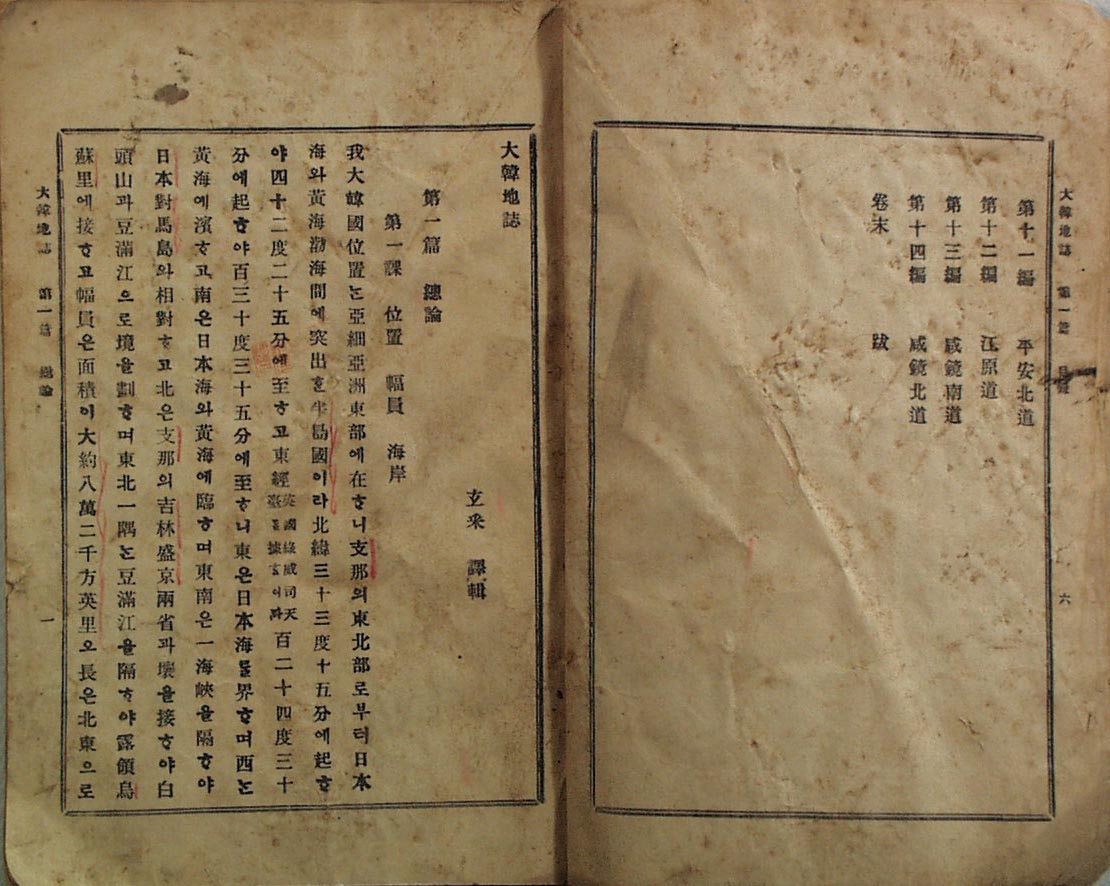 大韓地誌 第一篇 目錄 六
第十一編 平安北道
第十二編 江原道
第十三編 咸鏡南道
第十四編 咸鏡北道
卷末 跋
大韓地誌
玄采 譯輯
第一篇 總論
第一課 位置 幅員 海岸
我大韓國位置는亞細亞洲東部에在ᄒᆞ니支那의東北部로부터日本
海와黃海渤海間에突出ᄒᆞᆫ半島國이라北緯三十三度十五分에起ᄒᆞ
야四十二度二十五分에至ᄒᆞ고東經英國綠威司天臺를據ᄒᆞ이라百二十四度三十
分에起ᄒᆞ야百三十度三十五分에至ᄒᆞ니東은日本海를界ᄒᆞ며西는
黃海에濱ᄒᆞ고南은日本海와黃海에臨ᄒᆞ며東南은一海峽을隔ᄒᆞ야
日本對馬島와相對ᄒᆞ고北은支那의吉林盛京兩省과壤을接ᄒᆞ야白
頭山과豆滿江으로境을劃ᄒᆞ며東北一隅는豆滿江을隔ᄒᆞ야露領烏
蘇里에接ᄒᆞ고幅員은面積이大約八萬二千方英里오長은北東으로
大韓地誌 第一篇 總論 一